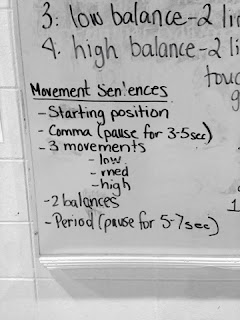 3. low balance-2
4. high balance-2
Movement Sentences
-Starting position
-Comma (pause for 3-5sec)
-3 movements
-low
-med
-high
-2 balances
-Period (pause for 5-7sec)
1